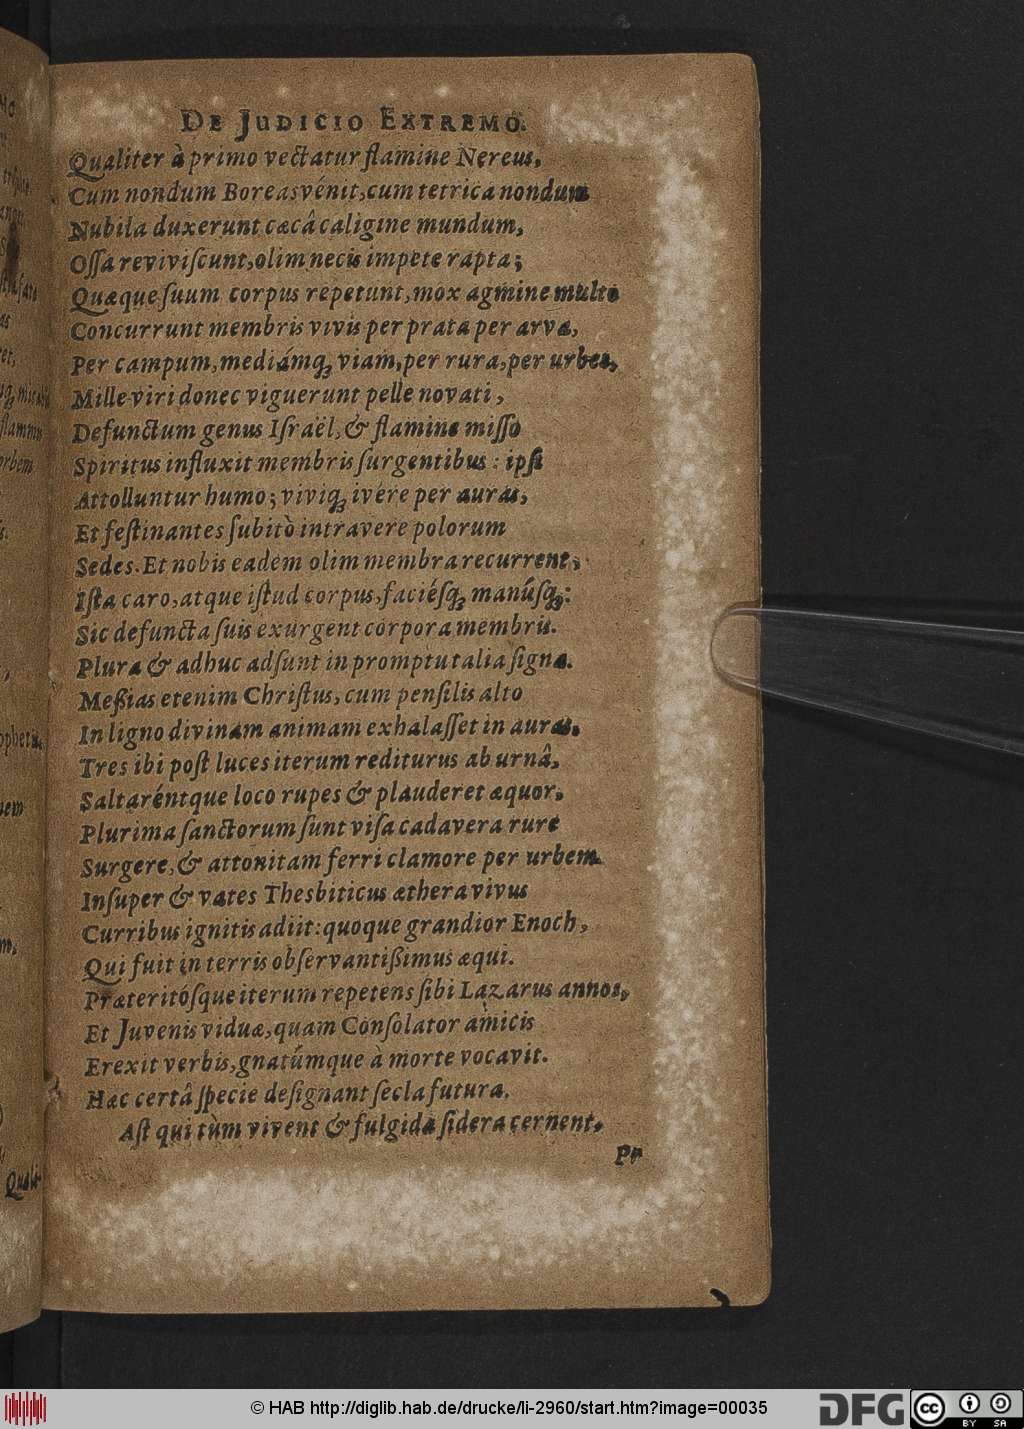 DE JUDICIO EXTREMO.
Qualiter à primo vectatur flamine Nereus,
Cum nondum Boreas vénit, cum tetrica nondum
Nubila duxerunt cæcâ caligine mundum,
Ossa reviviſcunt, olim necis impete rapta;
Quæque ſuum corpus repetunt, mox agmine multo
Concurrunt membris vivis per prata per arva,
Per campum, mediámq́ꝫ viam, per rura, per urbes,
Mille viri donec viguerunt pelle novati,
Defunctum genus Iſraël, & flamine miſſo
Spiritus influxit membris ſurgentibus: ipſi
Attolluntur humo; viviq́ꝫ ivére per auras,
Et feſtinantes ſubitò intravere polorum
Sedes. Et nobis eadem olim membra recurrent,
Iſta caro, atque iſtud corpus, faciéſq́ꝫ manúſq́ꝫ:
Sic defuncta ſuis exurgent corpora membris.
Plura & adhuc adſunt in promptu talia ſigna.
Meßias etenim Chriſtus, cum penſilis alto
In ligno divinam animam exhalaſſet in auras,
Tres ibi poſt luces iterum rediturus ab urnâ,
Saltaréntque loco rupes & plauderet æquor,
Plurima ſanctorum ſunt viſa cadavera rure
Surgere, & attonitam ferri clamore per urbem.
Inſuper & vates Thesbiticus æthera vivus
Curribus ignitis adiit: quoque grandior Enoch,
Qui fuit in terris obſervantißimus æqui.
Præteritóſque iterum repetens ſibi Lazarus annos,
Et Juvenis viduæ, quam Conſolator amicis
Erexit verbis, gnatúmque à morte vocavit.
Hæc certâ ſpecie deſignant ſecla futura.
Aſt qui tùm vivent & fulgida ſidera cernent,
Quali-
© HAB http://diglib.hab.de/drucke/li-2960/start.htm?image=00035
DFG
cc
BY SA